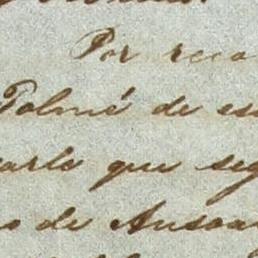 Por reca
Tolmé de es
arle que seg
o de Ansoa